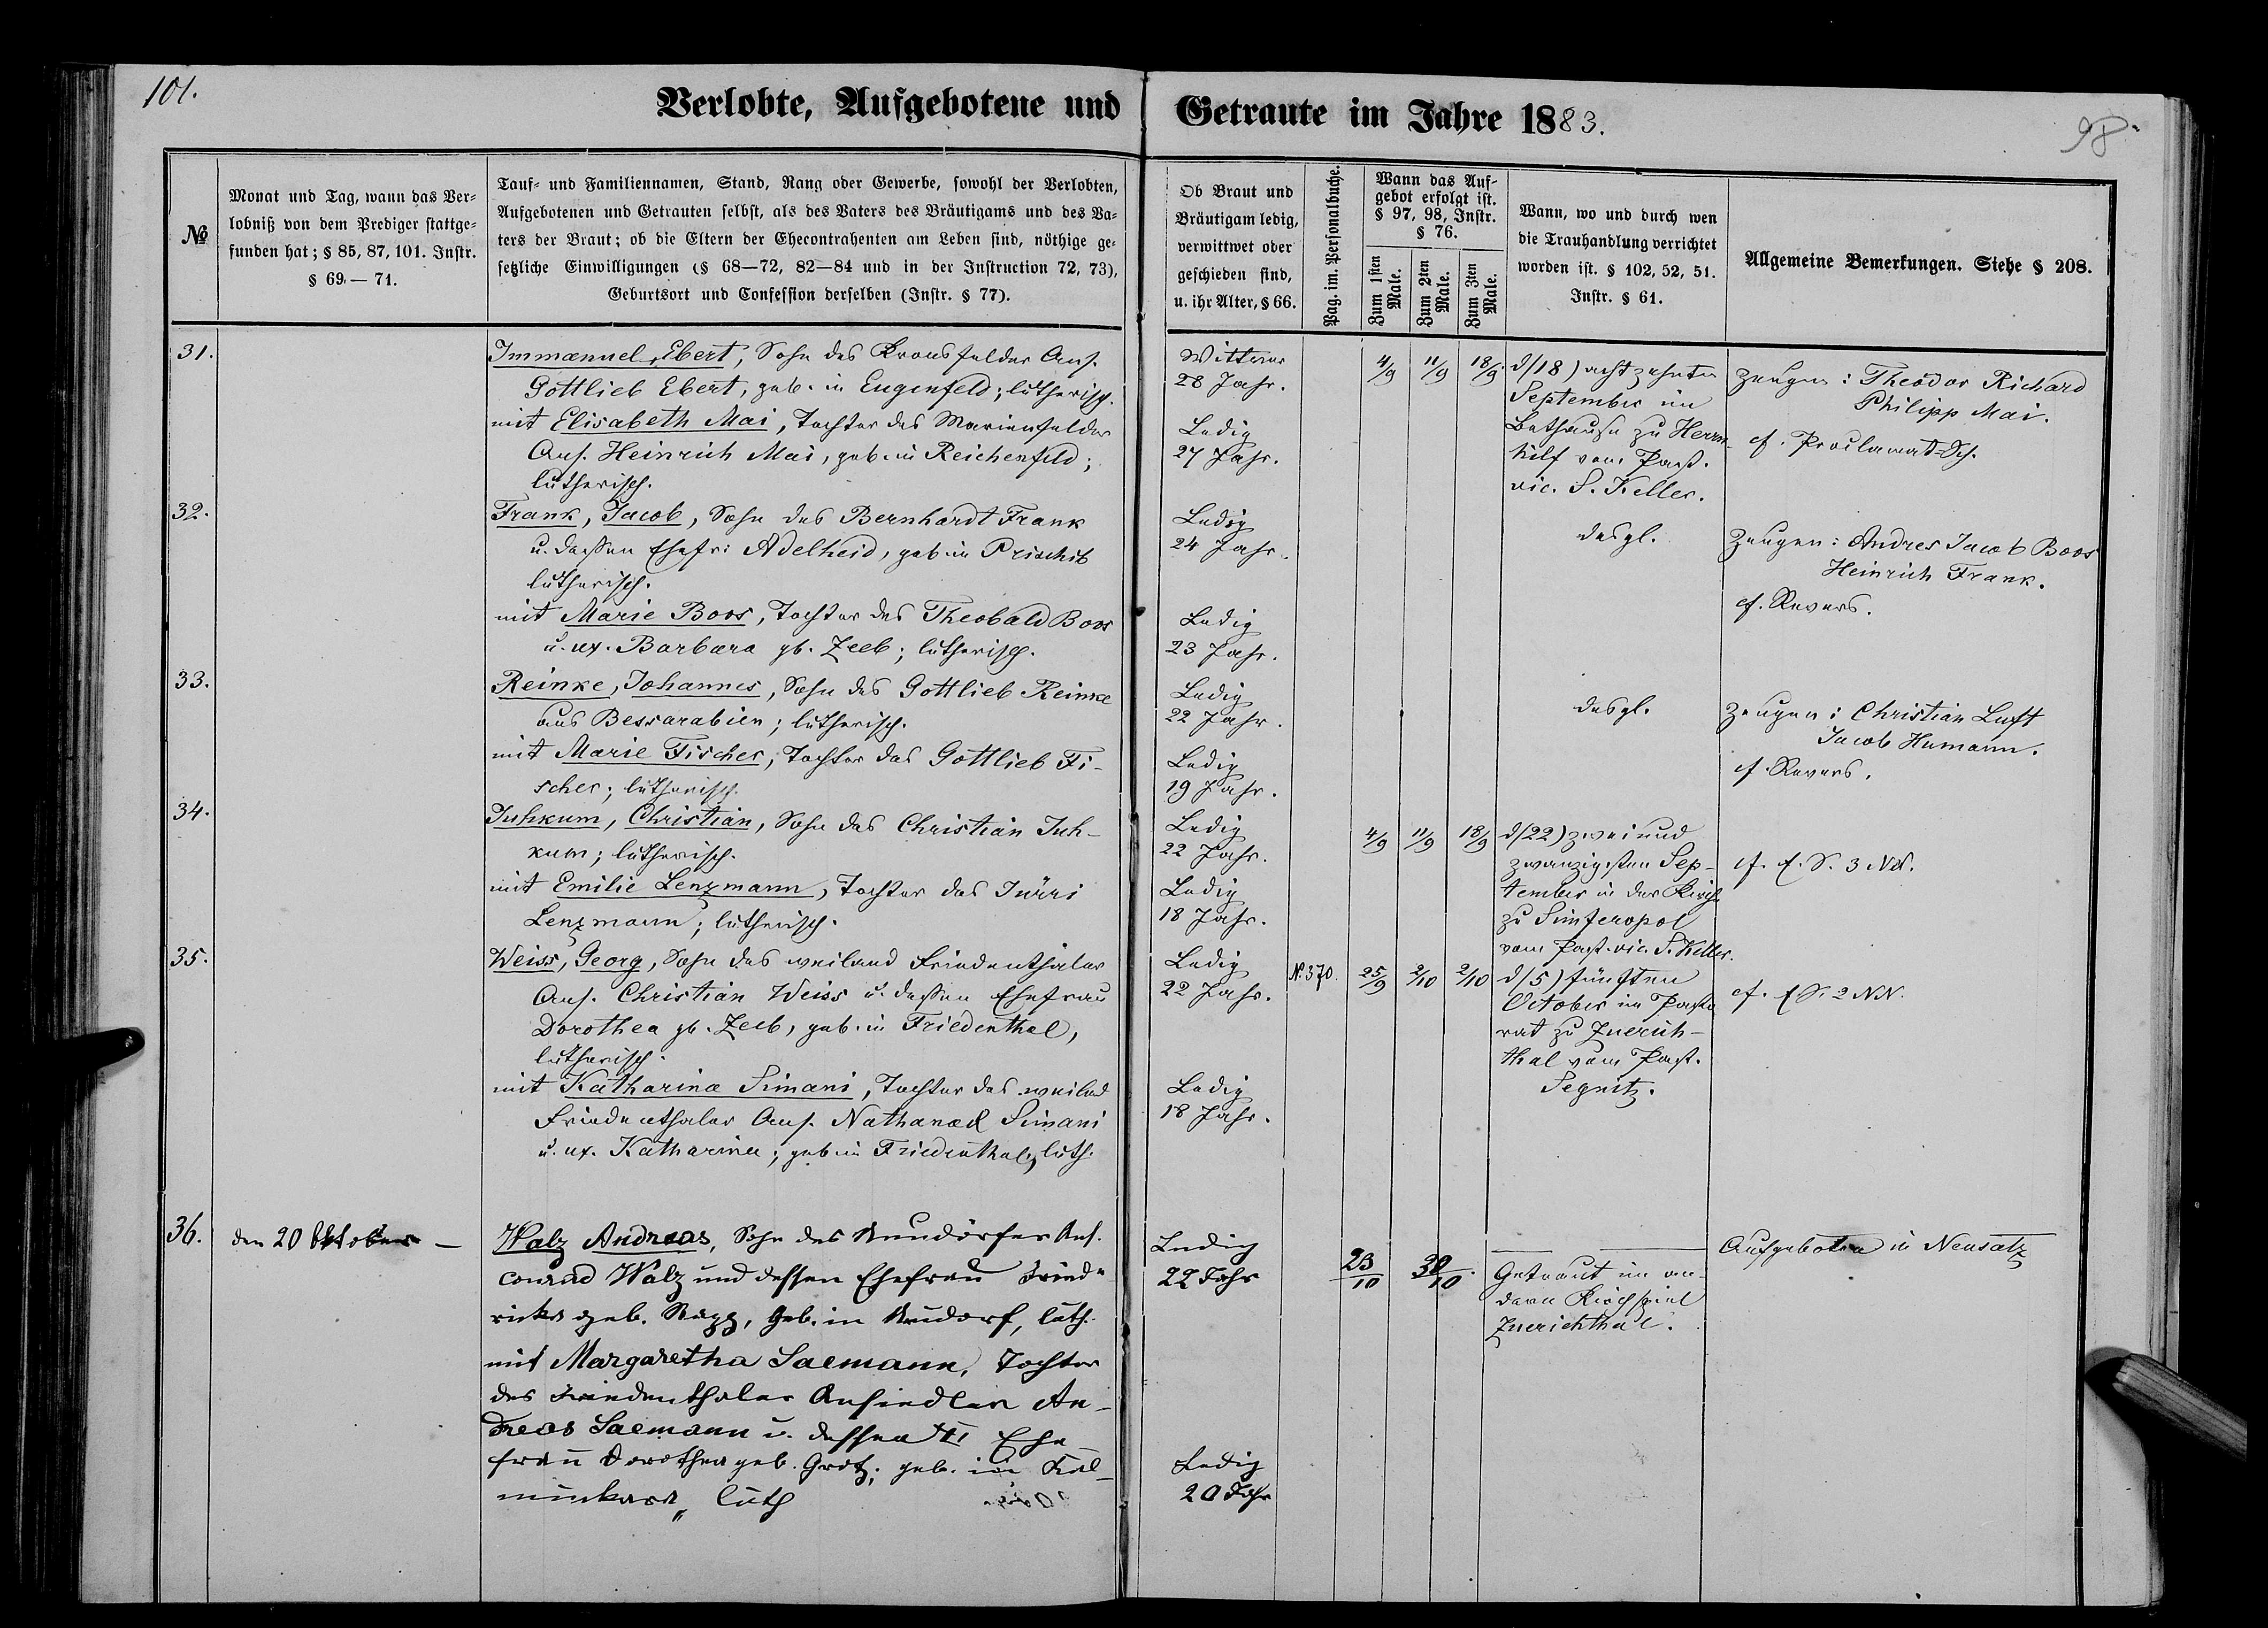 101.
Verlobte, Aufgebotene und Getraute im Jahre 1883.
98.
№
Monat und Tag, wann das Ver-
lobniß von dem Prediger stattge-
funden hat; § 85, 87, 101. Instr.
§ 69 — 71.
Tauf- und Familiennamen, Stand, Rang oder Gewerbe, sowohl der Verlobten,
Aufgebotenen und Getrauten selbst, als des Vaters des Bräutigams und des Va-
ters der Braut; ob die Eltern der Ehecontrahenten am Leben sind, nöthige ge-
setzliche Einwilligungen (§ 68—72, 82—84 und in der Instruction 72, 73),
Geburtsort und Confession derselben (Instr. § 77).
Ob Braut und
Bräutigam ledig,
verwittwet oder
geschieden sind,
u. ihr Alter, § 66.
Pag. im. Personalbuche.
Wann das Auf-
gebot erfolgt ist.
§ 97, 98, Instr.
§ 76.
Zum 1sten
Male.
Zum 2ten
Male.
Zum 3ten
Male.
Wann, wo und durch wen
die Trauhandlung verrichtet
worden ist. § 102, 52, 51.
Instr. § 61.
Allgemeine Bemerkungen. Siehe § 208.
31.
Immanuel, Ebert, Sohn des Kronsfelder Ans.
Gottlieb Ebert, geb. in Eugenfeld; lutherisch.
mit Elisabeth Mai, Tochter des Marienfelder
Ans. Heinrich Mai, geb. in Reichenfeld;
lutherisch.
Wittwer
28 Jahr.
Ledig
27 Jahr.
4/9 11/9 18/9
d/18) achtzehnten
September im
Bethause zu Herrn-
hilf vom Past.
vic. S. Keller.
Zeugen: Theodor Richard
Philipp Mai.
cf. Proclamat-Sch.
32.
Frank, Jacob, Sohn des Bernhardt Frank
u. dessen Ehefr: Adelheid, geb in Prischib
lutherisch.
mit Marie Boos, Tochter des Theobald Boos
u. ux. Barbara gb. Zeeb; lutherisch.
Ledig
24 Jahr.
Ledig
23 Jahr.
desgl.
Zeugen: Andres Jacob Boos
Heinrich Frank.
cf. Revers.
33.
Reinke, Johannes, Sohn des Gottlieb Reinke
aus Bessarabien; lutherisch.
mit Marie Fischer, Tochter des Gottlieb Fi-
scher; lutherisch.
Ledig
22 Jahr.
Ledig
19 Jahr.
desgl.
Zeugen: Christian Luft
Jacob Humann.
cf. Revers.
34.
Juhkum, Christian, Sohn des Christian Juh-
kum; lutherisch.
mit Emilie Lenzmann, Tochter des Jürri
Lenzmann; lutherisch.
Ledig
22 Jahr.
Ledig
18 Jahr.
4/9 11/9 18/9
d/22) zweiund
zwanzigsten Sep-
tember in der Kirche
zu Simferopol
vom Past. vic. S. Keller.
cf. S. 3
35.
Weiss, Georg, Sohn des weiland Friedenthaler
Ans. Christian Weiss u. dessen Ehefrau
Dorothea gb. Zeeb, geb. in Friedenthal,
lutherisch.
mit Katharina Simani, Tochter des weiland
Friedenthaler Ans. Nathanael Simani
u. ux. Katharina; geb in Friedenthal, luth.
Ledig
22 Jahr.
Ledig
18 Jahr.
№ 370.
25/9 2/10 2/10
d/5) fünften
October im Pasto
rat zu Zuerich-
thal vom Past.
Segnitz.
cf. S. 2 NN.
36.
den 20 Oktober —
Walz Andreas, Sohn des Neudörfer Ans.
Conrad Walz und dessen Ehefrau Friede
ricka geb. Rapp, geb. in Neudorf, luth.
mit Margaretha Saemann, Tochter
des Friedenthaler Ansiedler An-
dreas Saemann u. dessen II Ehe
frau Dorothea geb. Grotz; geb. in Kal-
luth
Ledig
22 Jahr
Ledig
20 Jahr
23/10 30/10
Getraut im an-
dern Kirchspiel
Zuerichthal.
Aufgeboten in Neusatz